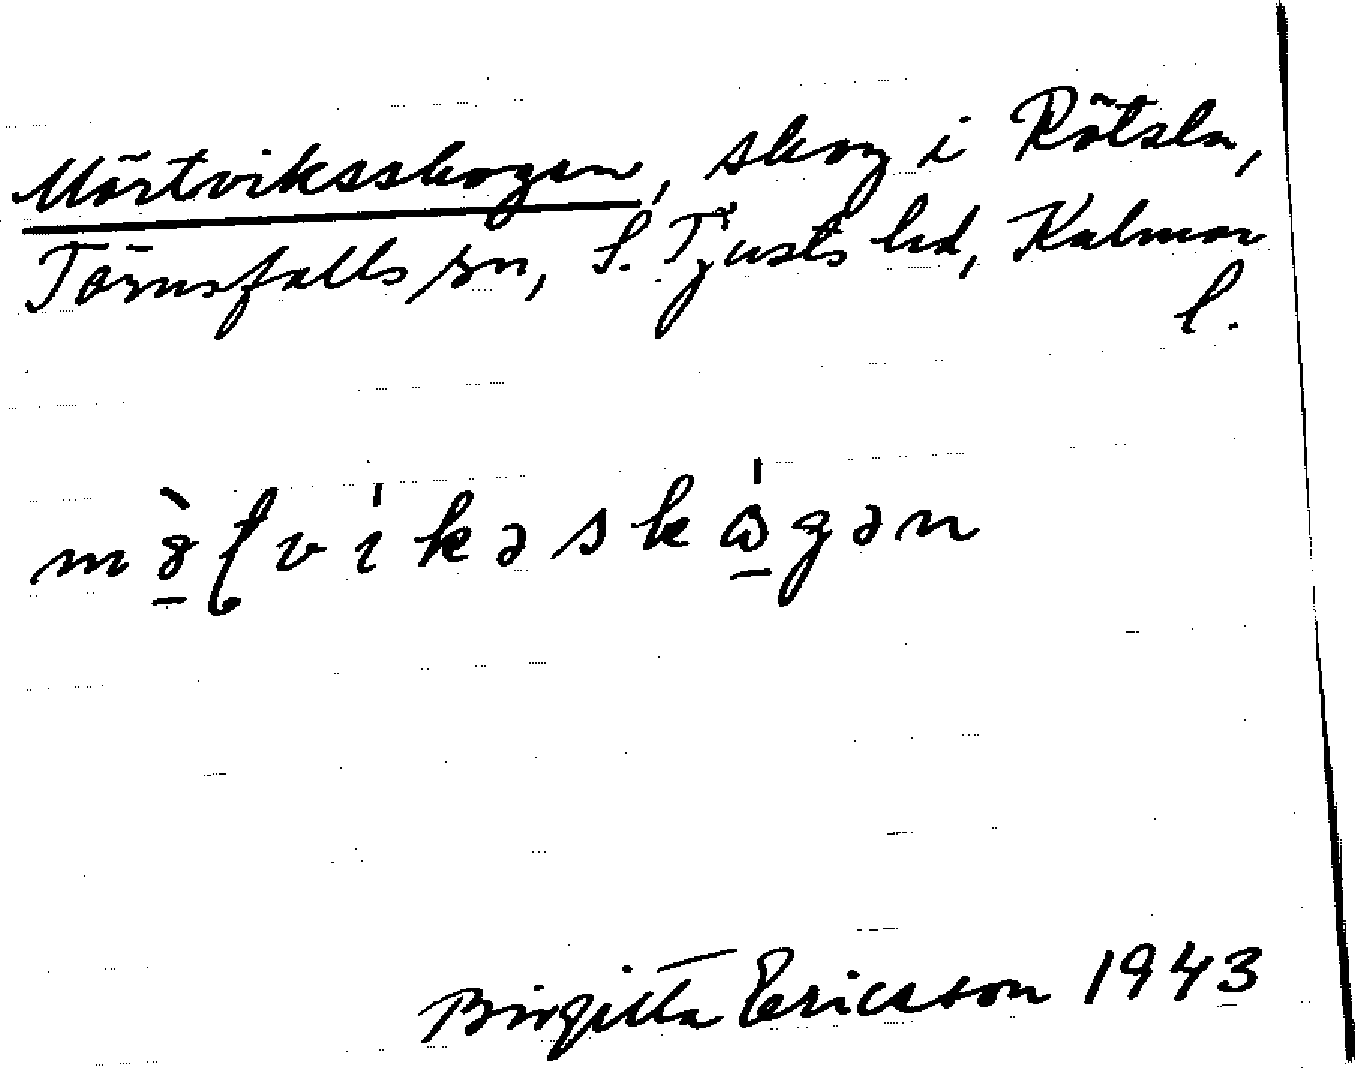 Mörtviksskogen, skog i Rötsla,
Törnsfalls sn, S. Tjusts hd, Kalmar
l.
Birgitta Ericsson 1943